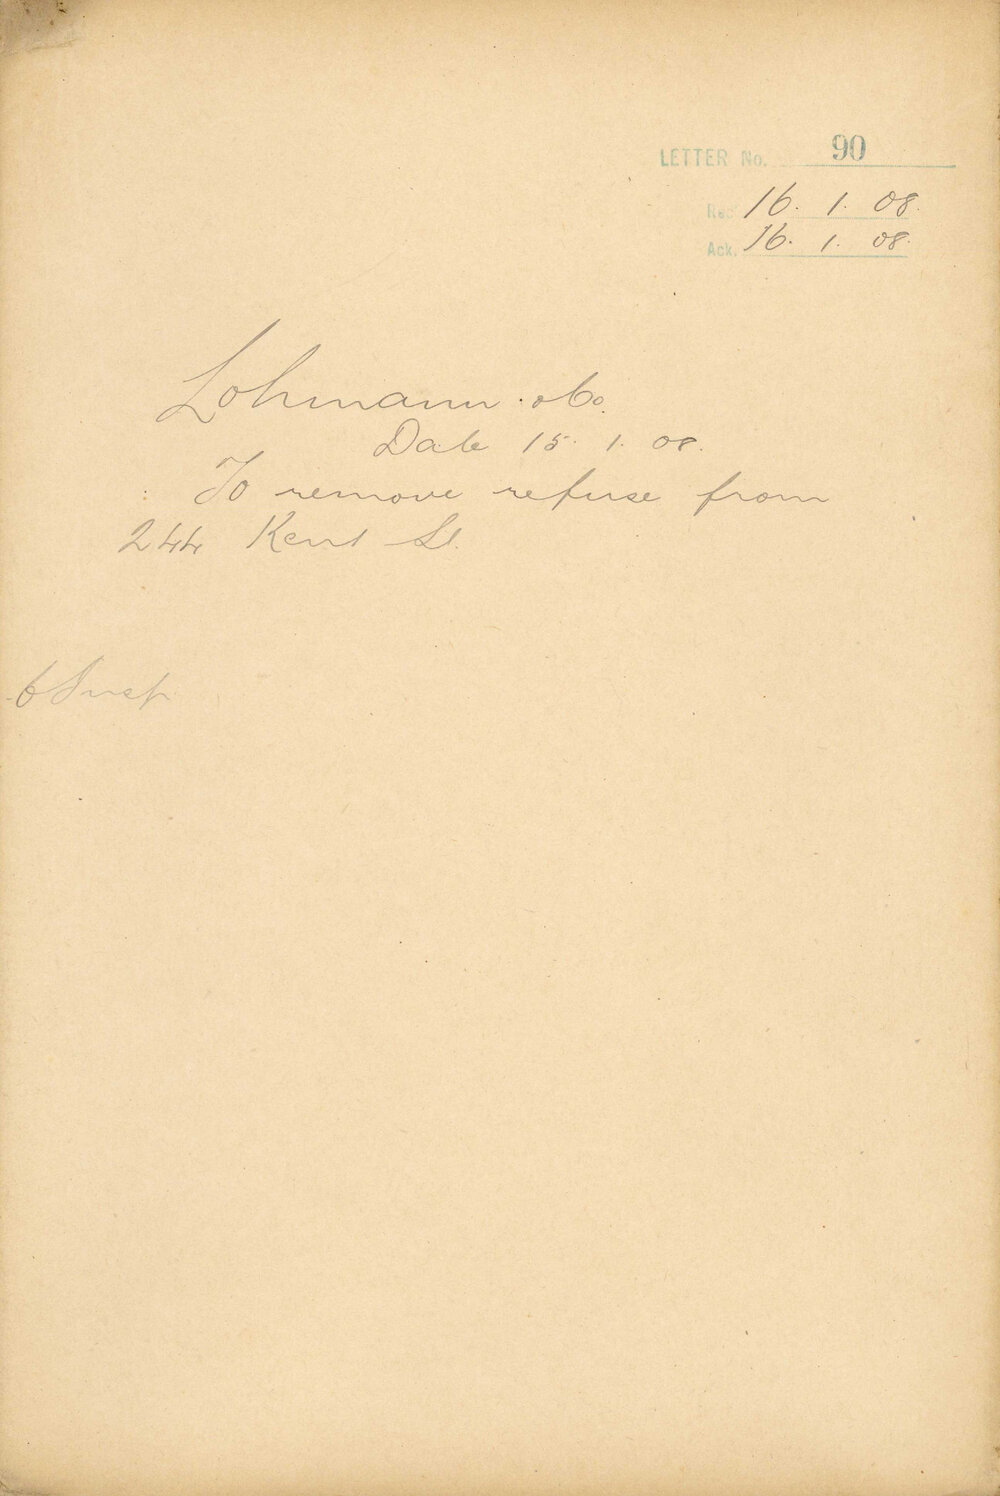 LETTER No. 90
Rec 16. 1. 08.
Ack. 16. 1. 08.
Lohmann & Co.
Date 15. 1. 08.
To remove refuse from
244 Kent St.
C Insp